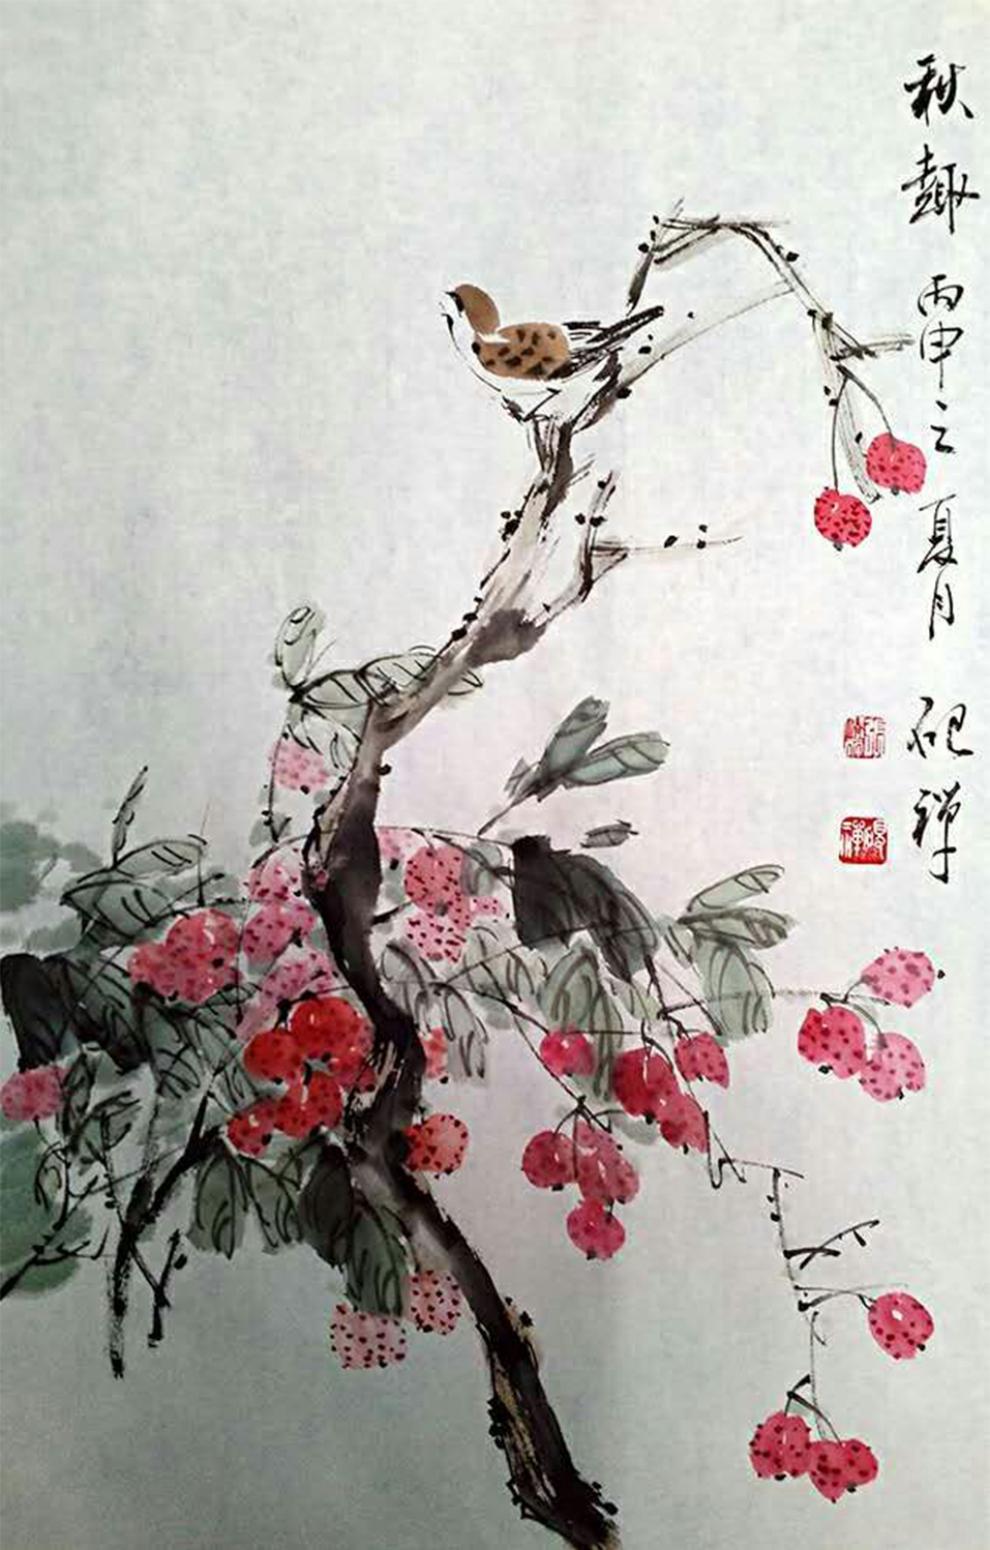 秋趣 丙申之夏月 砚禅